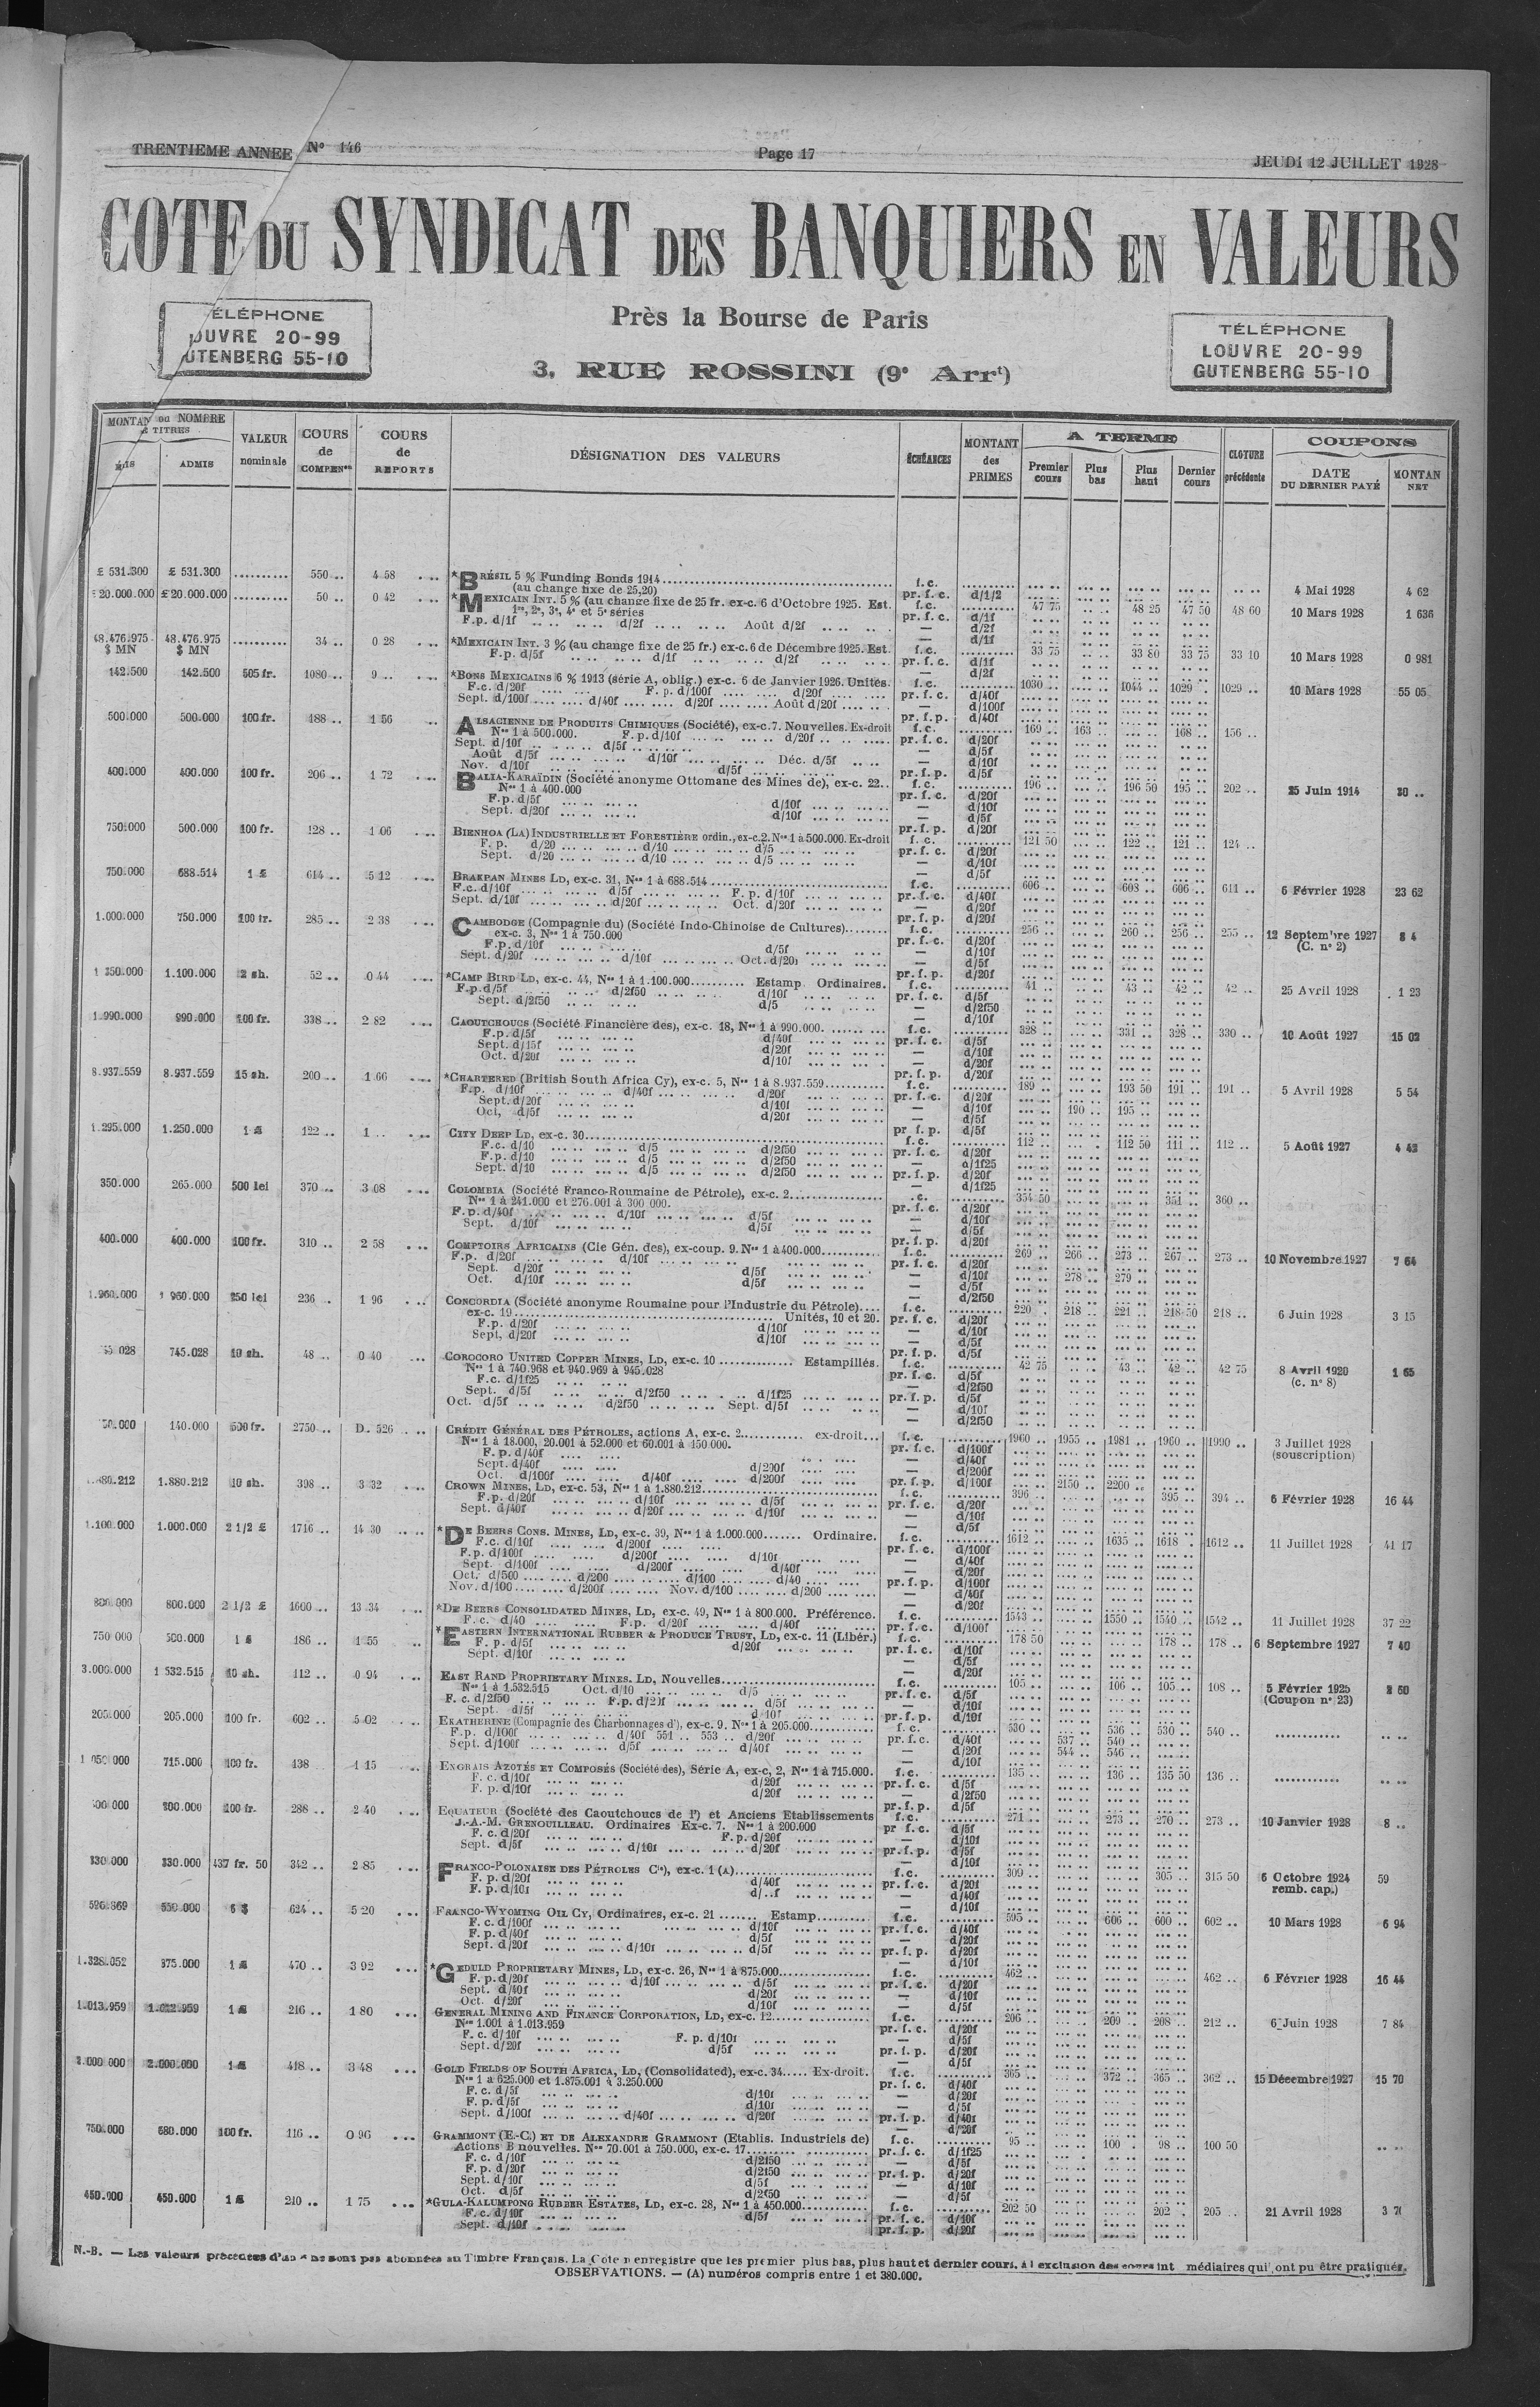 TRENTIEME ANNEE N° 146
Page 17
JEUDI 12 JUILLET 1928
COTE DU SYNDICAT DES BANQUIERS EN VALEURS
Près la Bourse de Paris
3, RUE ROSSINI (9e Arrt)
ÉLÉPHONE
OUVRE 20-99
UTENBERG 55-10
TÉLÉPHONE
LOUVRE 20-99
GUTENBERG 55-10
MONTAN ou NOMBRE
TITRES
ADMIS
VALEUR nominale
COURS de COMPENon
COURS de REPORTS
DÉSIGNATION DES VALEURS
ÉCHÉANCES
MONTANT des PRIMES
A TERME
Premier cours
Plus bas
Plus haut
Dernier cours
CLOTURE précédente
COUPONS
DATE DU DERNIER PAYÉ
MONTAN NET
£ 531.300 £ 531.300 .......... 550 .. 4 58 *BRÉSIL 5 % Funding Bonds 1914 f.c. 4 Mai 1928 4 62
(au change fixe de 25,20) pr. f. c. d/1/2
20.000.000 £20.000.000 .......... 50 .. 0 42 *MEXICAIN INT. 5 % (au change fixe de 25 fr. ex-c. 6 d'Octobre 1925. Est. f.c. 47 75 48 25 47 50 48 60 10 Mars 1928 1 636
1re, 2e, 3e, 4e et 5e séries pr. f. c. d/1f
F.p. d/1f d/2f Août d/2f — d/2f
48.476.975 48.476.975 .......... 34 .. 0 28 *MEXICAIN INT. 3 % (au change fixe de 25 fr.) ex-c. 6 de Décembre 1925. Est. f.c. 33 75 33 80 33 75 33 10 10 Mars 1928 0 981
$ MN $ MN F.p. d/5f d/1f d/2f pr. f. c. d/1f
142.500 142.500 505 fr. 1080 .. 9 .. *BONS MEXICAINS 6 % 1913 (série A, oblig.) ex-c. 6 de Janvier 1926. Unités. f.c. 1030 .. 1044 .. 1029 .. 1029 .. 10 Mars 1928 55 05
F.c. d/20f F. p. d/100f d/20f pr. f. c. d/40f
Sept. d/100f d/40f d/20f Août d/20f — d/100f
500.000 500.000 100 fr. 188 .. 1 56 ALSACIENNE DE PRODUITS CHIMIQUES (Société), ex-c. 7. Nouvelles. Ex-droit f.c. 169 .. 163 .. 168 .. 156 ..
Nos 1 à 500.000. F.p. d/10f d/20f pr. f. c. d/20f
Sept. d/10f d/5f — d/5f
Août d/5f d/10f Déc. d/5f — d/10f
Nov. d/10f d/5f pr. f.p. d/5f
400.000 400.000 100 fr. 206 .. 1 72 BALIA-KARAÏDIN (Société anonyme Ottomane des Mines de), ex-c. 22.. f.c. 196 .. 196 50 195 .. 202 .. 25 Juin 1914
Nos 1 à 400.000 pr. f. c. d/20f
F.p. d/5f d/10f — d/10f
Sept. d/20f d/10f — d/5f
750.000 500.000 100 fr. 128 .. 1 06 BIENHOA (LA) INDUSTRIELLE ET FORESTIÈRE ordin., ex-c. 2. Nos 1 à 500.000. Ex-droit f. c. 121 50 122 .. 121 .. 124 ..
F. p. d/20 d/10 d/5 pr. f. c. d/20f
Sept. d/20 d/10 d/5 — d/10f
750.000 688.514 1 £ 614 .. 5 12 BRAKPAN MINES LD, ex-c. 31, Nos 1 à 688.514 f.c. 606 .. 608 .. 606 .. 611 .. 6 Février 1928 23 62
F.c. d/10f d/5f F. p. d/10f pr. f. c. d/40f
Sept. d/10f d/20f Oct. d/20f — d/20f
1.000.000 750.000 100 fr. 285 .. 2 38 CAMBODGE (Compagnie du) (Société Indo-Chinoise de Cultures) f.c. 256 .. 260 .. 256 .. 255 .. 12 Septembre 1927 8 4
ex-c. 3, Nos 1 à 750.000 pr. f. c. d/20f (C. n° 2)
F.p. d/10f d/5f — d/10f
Sept. d/20f d/10f Oct. d/20f — d/5f
1 350.000 1.100.000 2 sh. 52 .. 0 44 *CAMP BIRD LD, ex-c. 44, Nos 1 à 1.100.000 Estamp. Ordinaires. f.c. 41 .. 43 .. 42 .. 42 .. 25 Avril 1928 1 23
F.p. d/5f d/2f50 d/10f pr. f. c. d/5f
Sept. d/2f50 d/5 — d/2f50
1.990.000 990.000 100 fr. 338 .. 2 82 CAOUTCHOUCS (Société Financière des), ex-c. 18, Nos 1 à 990.000. f.c. 328 .. 331 .. 328 .. 330 .. 10 Août 1927 15 02
F.p. d/5f d/40f pr. f. c. d/5f
Sept. d/15f d/20f — d/10f
Oct. d/20f d/10f — d/20f
8.937.559 8.937.559 15 sh. 200 .. 1 66 *CHARTERED (British South Africa Cy), ex-c. 5, Nos 1 à 8.937.559 f.c. 189 .. 193 50 191 .. 191 .. 5 Avril 1928 5 54
F.p. d/10f d/40f d/20f pr. f. c. d/20f
Sept. d/20f d/10f — d/10f 190 .. 195 ..
Oct, d/5f d/20f — d/5f
1.295.000 1.250.000 1 £ 122 .. 1 .. CITY DEEP LD, ex-c. 30 f.c. 112 .. 112 50 111 .. 112 .. 5 Août 1927 4 42
F.c. d/10 d/5 d/2f50 pr. f. c. d/20f
F.p. d/10 d/5 d/2f50 — d/1f25
Sept. d/10 d/5 d/2f50 pr. f. p. d/20f
350.000 265.000 500 lei 370 .. 3 08 COLOMBIA (Société Franco-Roumaine de Pétrole), ex-c. 2 .c. 354 50 351 .. 360 ..
Nos 1 à 241.000 et 276.001 à 300 000. pr. f. c. d/20f
F. p. d/40f d/10f d/5f — d/10f
Sept. d/10f d/5f — d/5f
400.000 400.000 100 fr. 310 .. 2 58 COMPTOIRS AFRICAINS (Cie Gén. des), ex-coup. 9. Nos 1 à 400.000 f.c. 269 .. 266 .. 273 .. 267 .. 273 .. 10 Novembre 1927 7 64
F.p. d/20f d/10f pr. f. c. d/20f
Sept. d/20f d/5f — d/10f 278 .. 279 ..
Oct. d/10f d/5f — d/5f
1.960.000 1 960.000 250 lei 236 .. 1 96 CONCORDIA (Société anonyme Roumaine pour l'Industrie du Pétrole) f.c. 220 .. 218 .. 221 .. 218 50 218 .. 6 Juin 1928 3 15
ex-c. 19 Unités, 10 et 20. pr. f. c. d/20f
F.p. d/20f d/10f — d/10f
Sept, d/20f d/10f — d/5f
745.028 10 sh. 48 .. 0 40 COROCORO UNITED COPPER MINES, LD, ex-c. 10 Estampillés. f.c. 42 75 43 .. 42 .. 42 75 8 Avril 1920 1 65
Nos 1 à 740.968 et 940.969 à 945.028 pr. f. c. d/5f (c. n° 8)
F.c. d/1f25 — d/2f50
Sept. d/5f d/2f50 d/1f25 pr. f. p. d/5f
Oct. d/5f d/2f50 Sept. d/5f — d/10f
140.000 500 fr. 2750 .. D. 526 CRÉDIT GÉNÉRAL DES PÉTROLES, actions A, ex-c. 2 ex-droit f.c. 1960 .. 1955 .. 1981 .. 1960 .. 1990 .. 3 Juillet 1928
Nos 1 à 18.000, 20.001 à 52.000 et 60.001 à 150.000. pr. f. c. d/100f (souscription)
F. p. d/40f — d/40f
Sept. d/40f d/200f — d/200f
Oct. d/100f d/40f d/200f pr. f.p. d/100f 2150 .. 2200 ..
1.880.212 10 sh. 398 .. 3 32 CROWN MINES, LD, ex-c. 53, Nos 1 à 1.880.212 f.c. 396 .. 395 .. 394 .. 6 Février 1928 16 44
F.p. d/20f d/10f d/5f pr. f. c. d/20f
Sept. d/40f d/20f d/10f — d/10f
1.100.000 1.000.000 2 1/2 £ 1716 .. 14 30 *DE BEERS CONS. MINES, LD, ex-c. 39, Nos 1 à 1.000.000 Ordinaire. f.c. 1612 .. 1635 .. 1618 . 1612 .. 11 Juillet 1928 41 17
F.c. d/10f d/200f pr. f. c. d/100f
F.p. d/100f d/200f d/10f — d/40f
Sept. d/100f d/200f d/40f — d/20f
Oct. d/500 d/200 d/100 d/40 pr. f.p. d/100f
Nov. d/100 d/200f Nov. d/100 d/200 — d/40f
800.000 800.000 2 1/2 £ 1600 .. 13 34 *DE BEERS CONSOLIDATED MINES, LD, ex-c. 49, Nos 1 à 800.000. Préférence. f.c. 1543 .. 1550 .. 1540 .. 1542 .. 11 Juillet 1928 37 22
F. c. d/40 F.p. d/20f d/40f pr. f. c. d/100f
750 000 500.000 1 £ 186 .. 1 55 *EASTERN INTERNATIONAL RUBBER & PRODUCE TRUST, LD, ex-c. 11 (Libér.) f.c. 178 50 178 .. 178 .. 6 Septembre 1927 7 40
F. p. d/5f d/20f pr. f. c. d/10f
Sept. d/10f — d/5f
3.000.000 1 532.515 10 sh. 112 .. 0 94 EAST RAND PROPRIETARY MINES. LD, Nouvelles f.c. 105 .. 106 .. 105 .. 108 .. 5 Février 1925
Nos 1 à 1.532.515 Oct. d/10 d/5 pr. f. c. d/5f (Coupon n° 23)
F. c. d/2f50 F.p. d/2)f d/5f — d/10f
Sept. d/5f d/10f pr. f. p. d/10f
205.000 205.000 100 fr. 602 .. 5 02 EKATHERINE (Compagnie des Charbonnages d'), ex-c. 9. Nos 1 à 205.000 f.c. 530 .. 536 .. 530 .. 540 ..
F.p. d/100f d/40f 551 .. 553 .. d/20f pr. f. c. d/40f 537 .. 540 ..
Sept. d/100f d/5f d/40f — d/20f 544 .. 546 ..
1 050 000 715.000 100 fr. 138 1 15 ENGRAIS AZOTÉS ET COMPOSÉS (Société des), Série A, ex-c, 2, Nos 1 à 715.000. f.c. 135 .. 136 .. 135 50 136 ..
F. c. d/10f d/20f pr. f. c. d/5f
F. p. d/10f d/20f — d/2f50
100 fr. 288 .. 2 40 EQUATEUR (Société des Caoutchoucs de l') et Anciens Etablissements f.c. 271 .. 273 .. 270 .. 273 .. 10 Janvier 1928 8 ..
J.-A.-M. GRENOUILLEAU. Ordinaires Ex-c. 7. Nos 1 à 200.000 pr f. c. d/5f
F. c. d/20f F.p. d/20f — d/10f
Sept. d/5f d/10f d/20f pr. f. p. d/5f
330.000 330.000 437 fr. 50 342 .. 2 85 FRANCO-POLONAISE DES PÉTROLES Cie), ex-c. 1 (A) f.c. 309 .. 305 .. 315 50 6 Octobre 1924 59
F. p. d/20f d/40f pr. f. c. d/20f remb. cap.)
F. p. d/10f d/..f — d/40f
550.000 6 $ 624 .. 5 20 FRANCO-WYOMING OIL CY, Ordinaires, ex-c. 21 Estamp f.c. 595 .. 606 .. 600 .. 602 .. 10 Mars 1928 6 94
F. c. d/100f d/10f pr. f. c. d/40f
F. p. d/40f d/5f — d/20f
Sept. d/20f d/10f d/5f pr. f. p. d/20f
1.328.052 1 £ 470 .. 3 92 *GEDULD PROPRIETARY MINES, LD, ex-c. 26, Nos 1 à 875.000 f.c. 462 .. 462 .. 6 Février 1928 16 44
F. p. d/20f d/10f d/5f pr. f. c. d/20f
Sept. d/40f d/20f — d/10f
Oct. d/20f d/10f — d/5f
1.013.959 1.012.959 1 £ 216 .. 1 80 GENERAL MINING AND FINANCE CORPORATION, LD, ex-c. 12 f.c. 206 .. 209 .. 208 .. 212 .. 6 Juin 1928 7 84
Nos 1.001 à 1.013.959 pr. f. c. d/20f
F. c. d/10f F. p. d/10f — d/5f
Sept. d/20f d/5f pr. f. p. d/20f
2.000 000 2.000.000 1 £ 418 .. 3 48 GOLD FIELDS OF SOUTH AFRICA, LD, (Consolidated), ex-c. 34 Ex-droit. f.c. 365 .. 372 .. 365 .. 362 .. 15 Décembre 1927 15 70
Nos 1 à 625.000 et 1.875.001 à 3.250.000 pr. f. c. d/40f
F. c. d/5f d/10f — d/20f
F. p. d/5f d/10f — d/5f
Sept. d/100f d/40f d/20f pr. f. p. d/40f
750.000 680.000 100 fr. 116 .. 0 96 GRAMMONT (E.-C.) ET DE ALEXANDRE GRAMMONT (Etablis. Industriels de) f.c. 95 .. 100 . 98 .. 100 50
Actions B nouvelles. Nos 70.001 à 750.000, ex-c. 17 pr. f. c. d/1f25
F. c. d/10f d/2f50 — d/5f
F. p. d/20f d/2f50 pr. f. p. d/20f
Sept. d/10f d/5f — d/10f
Oct. d/5f d/2f50 — d/5f
450.000 450.000 1 £ 210 .. 1 75 *GULA-KALUMPONG RUBBER ESTATES, LD, ex-c. 28, Nos 1 à 450.000 f.c. 202 50 202 . 205 . 21 Avril 1928
F. c. d/10f d/5f pr. f. c. d/10f
Sept. d/10f pr. f. p. d/20f
N.-B. — Les valeurs précédées d'un * ne sont pas abonnées au Timbre Français. La Cote n enregistre que les premier plus bas, plus haut et dernier cours, à l exclusion des cours int médiaires qui ont pu être pratiqués.
OBSERVATIONS. — (A) numéros compris entre 1 et 380.000.